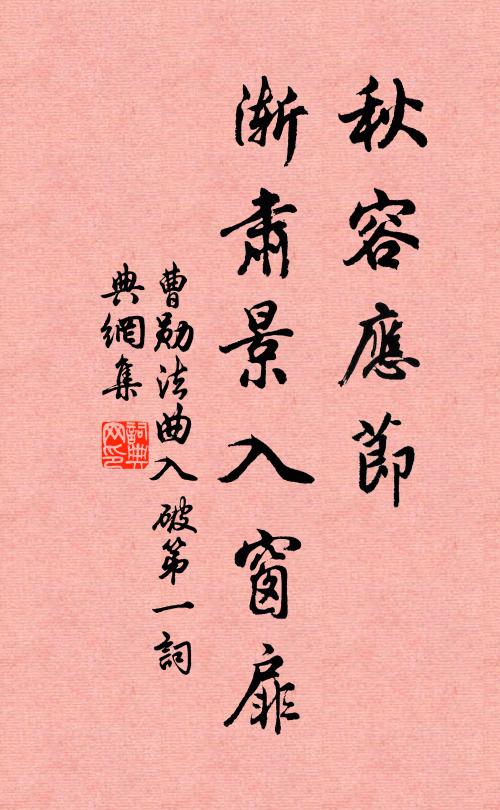 秋容應節
漸肅景入窗扉
曹勛法曲入破第一詞
典網集
詞典网印